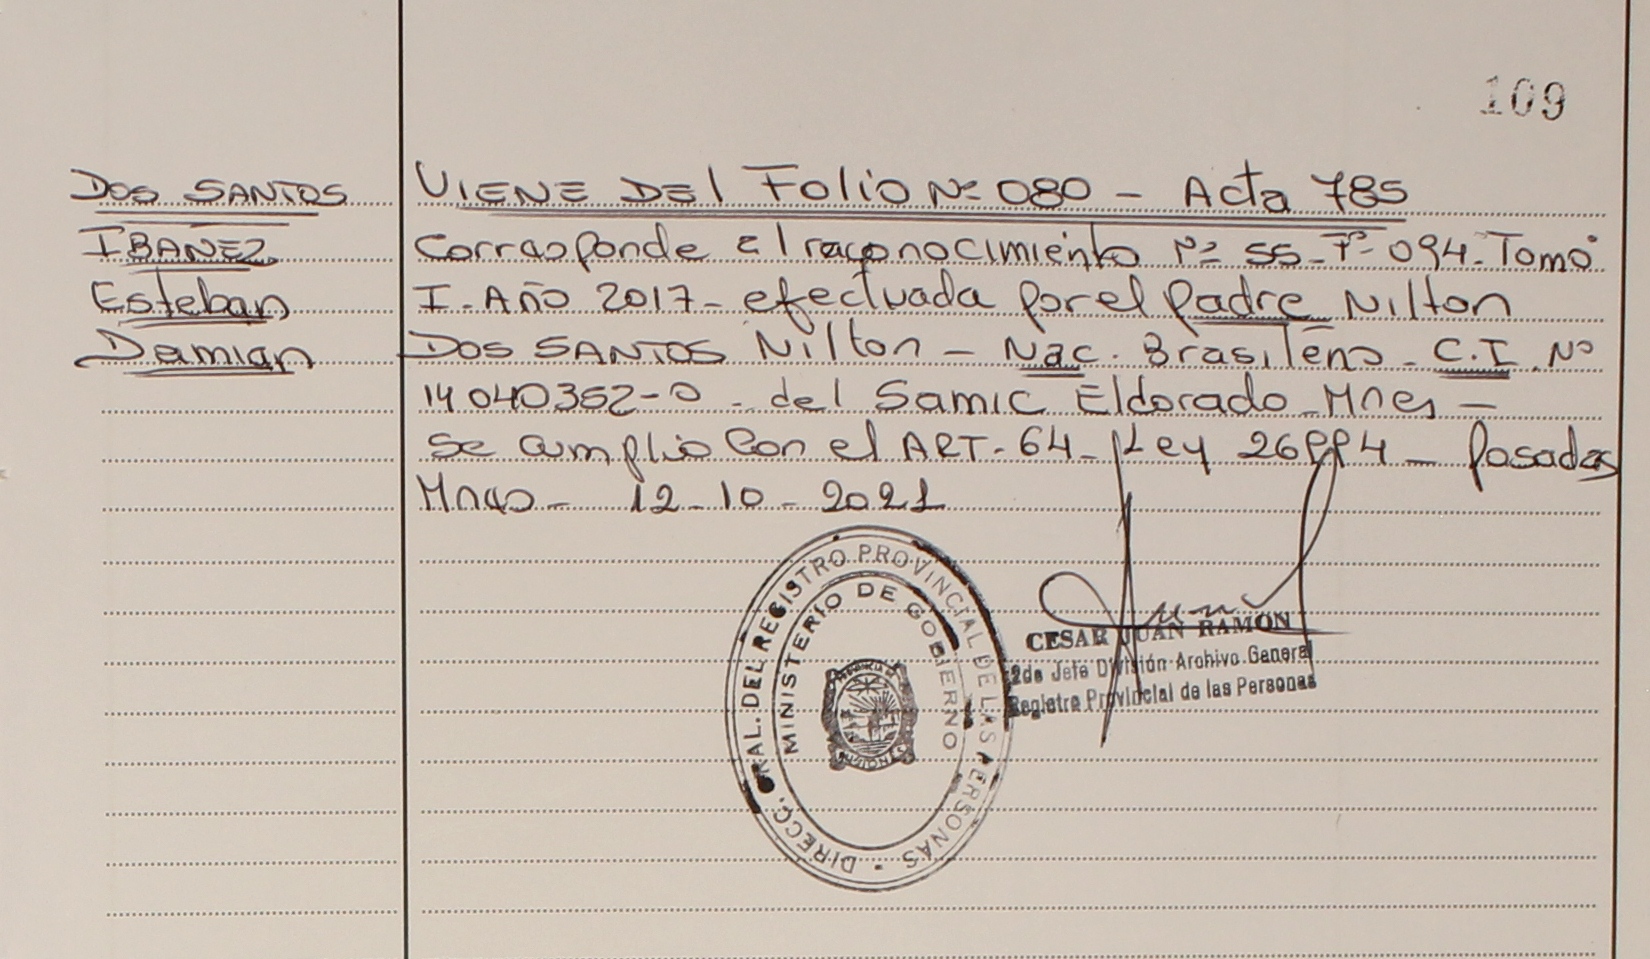 109
DOS SANTOS
IBAÑEZ
Esteban
Damian
VIENE DEl Folio Nº 080 - Acta 785
Corresponde al reconocimiento Nº 55 - Fº 094 - Tomo
I - Año 2017 - efectuada por el padre Nilton
DOS SANTOS Nilton - Nac. Brasileño - C.I Nº
14040362-0 - del Samic Eldorado Mnes -
se cumplio con el ART - 64 - Ley 26994 - Posadas
Mnes - 12 - 10 - 2021
DIRECC. GRAL. DEL REGISTRO PROVINCIAL DE LAS PERSONAS
MINISTERIO DE GOBIERNO
CESAR JUAN RAMON
2do Jefe División Archivo General
Registro Provincial de las Personas